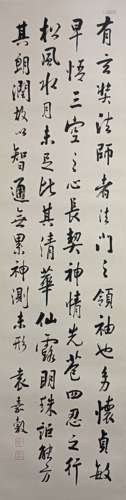 有玄奘法師者法門之領袖也幼懷貞敏
早悟三空之心長契神情先苞四忍之行
松風水月未足比其清華仙露明珠詎能方
其朗潤故以智通無累神測未形 袁嘉穀